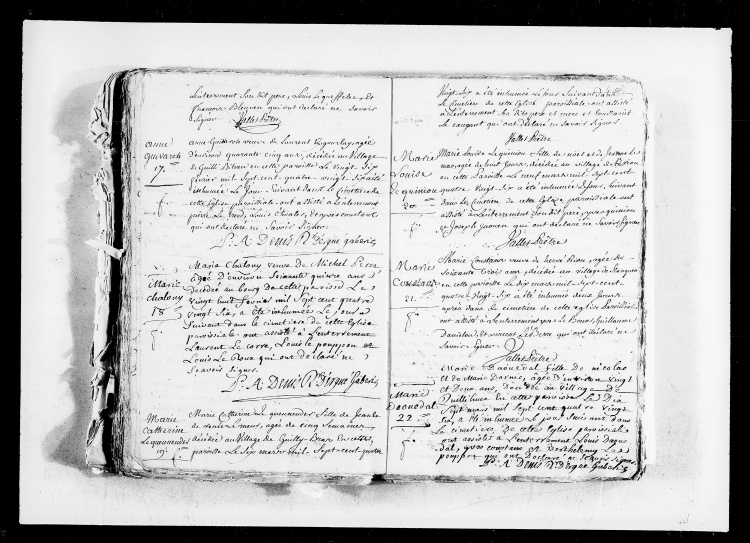 Lenterrement Son dit pere, Louis Le queffelec, et
francois Bleuzen qui ont declaré ne Savoir
Signer Jallet Prêtre
anne
quivarch
17.
anne Quivarch veuve de Laurent agée
d'environ quarante cinq ans, décédée au Village
de Guilli Bihan en cette paroisse Le Vingt Six
fevrier mil Sept cent quatre-vingt Six a été
inhumée Le Jour Suivant dans Le Cimetiere de
cette Eglise paroissiale ont assisté a L'enterrement
pierre Le Louis et yves constant
qui ont declaré ne Savoir Signer.
P. A. Denis
Marie
chalony
18.
Marie Chalony veuve de Michel
agée D'environ Soixante quinze ans
Decedée au bourg de cette paroisse Le
Vingt huit fevrier mil Sept cent quatre
vingt Six, a été inhumée Le Jour
Suivant dans le cimetiere de cette Eglise
paroissiale ont assisté a L'enterrement
Laurent Le corre, Louis Le pouppon et
Louis Le Roux qui ont declaré ne
Scavoir Signer.
P. A. Denis
Marie
Catherine
Le quinender
19.
Marie Catherine Le quinender fille de
de agée de cinq Semaines
décédée au Village de Guilly Bras En cette
paroisse Le Six mars mil Sept-cent quatre
Vingt-Six a été inhumée Le Jour Suivant dans
Le Cimetiere de cette Eglise paroissiale ont assisté
a L'enterrement Ses Dits pere et mere et
qui ont declaré ne Savoir Signer.
Jallet Prêtre
Marie
Louise
Le quinion
20.
Marie Louise Le quinion fille de noel et de Jeanne
agée de huit Jours, décédée au village de
en cette Paroisse Le neuf mars mil Sept cent
quatre Vingt-Six a été inhumée Le Jour Suivant
dans Le Cimetiere de cette Eglise paroissiale ont
assisté a L'enterrement Son Dit pere, quinion
et Joseph Jaouen qui ont declaré ne Savoir Signer
Jallet Prêtre
Marie
Constance
21.
Marie Constance veuve de herve Riou, agée de
Soixante Trois ans, décédée au village de
en cette paroisse Le Dix mars mil Sept-cent
quatre Vingt-Six a été inhumée deux Jours
après dans Le Cimetiere de cette eglise Paroissiale
ont assisté a L'enterrement yves Le Bourt, Guillaume
Daniélou, et vincent Le Berre qui ont declaré ne
Savoir Signer.
Jallet Prêtre
Marie
Daouedal
22.
Marie Daouedal fille De nicolas
et de Marie Darnec, agée D'environ vingt
et Deux ans, Decedée au village De
en cette paroisse Le Dix
Sept mars mil Sept cent quatre vingt
Six, a été inhumée Le Jour Suivant dans
Le cimetiere de cette Eglise paroissiale
ont assisté a L'enterrement Louis Daoue
dal, yves constant et Berthelemy Le
pouppon qui ont Declaré ne Scavoir Signer
P. A. Denis